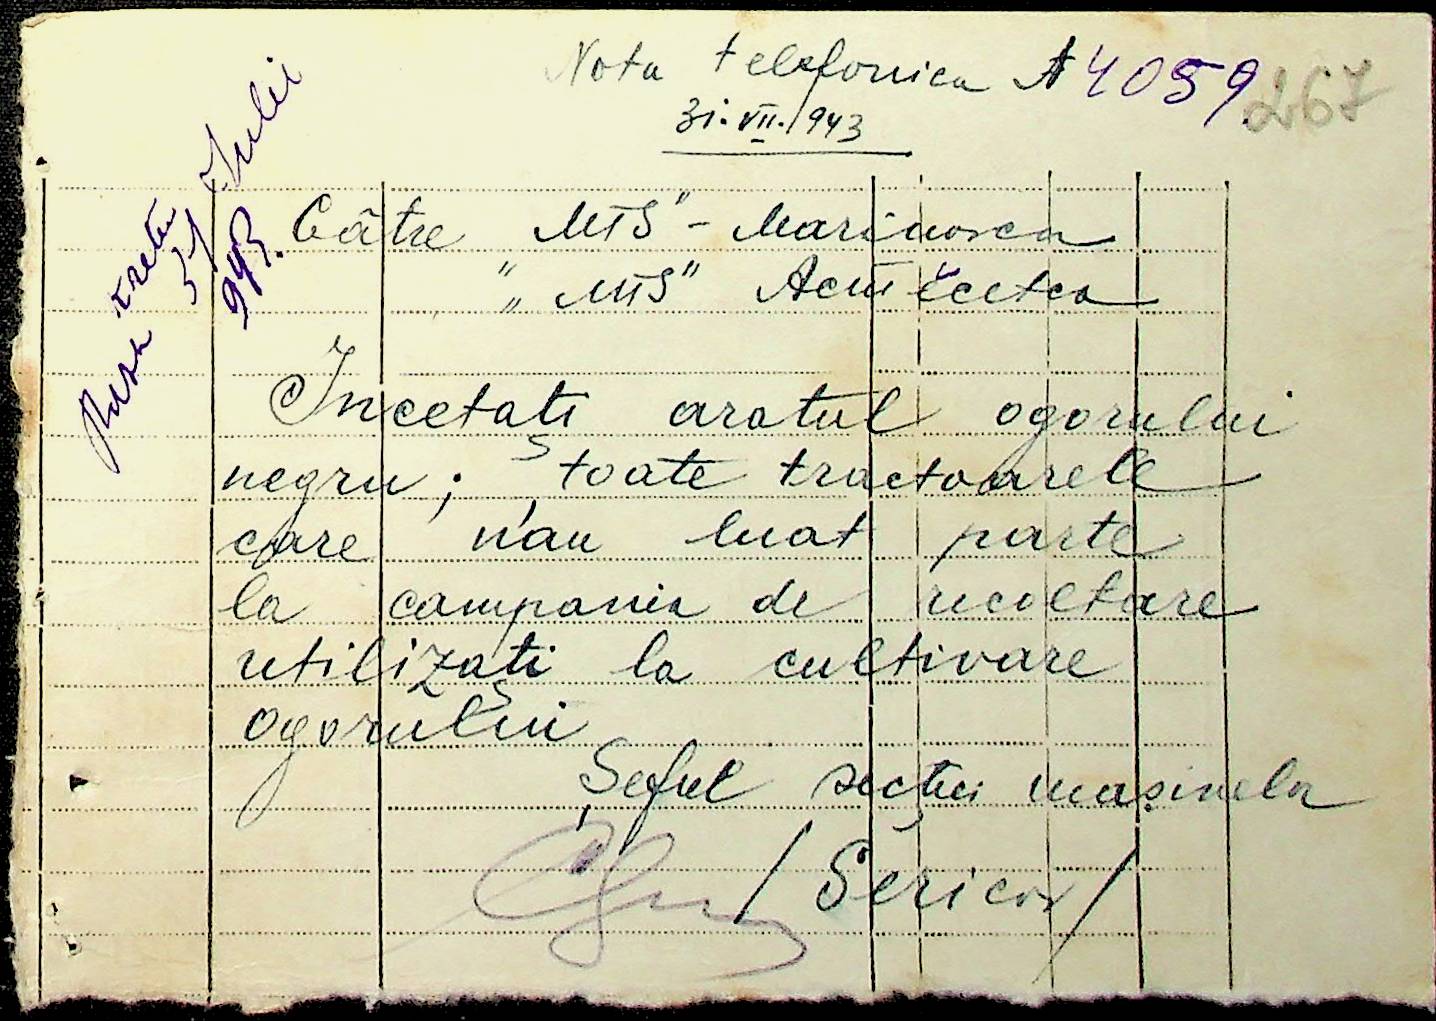 Nota telefonica № 4059
267
31.VII.1943
31 Iulie
943.
Către "MTS" - Marinovca
" "MTS"
Incetați aratul ogorului
negru; toate tractoarele
care n'au luat parte
la campania de recoltare
utilizați la cultivare
ogorului
Șeful secției mașinelor
/ Sericov /